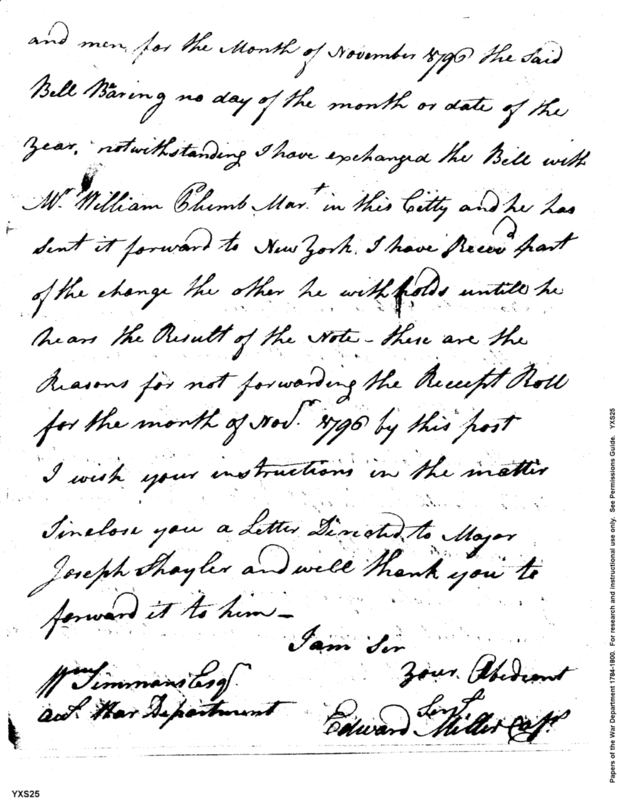 and men for the Month of November 1796 the Said
Bell Baring no day of the month or date of the
Year, notwithstanding I have exchanged the Bell with
Mr. William Plumb Mart in this Citty and he has
Sent it forward to New York. I have Receivd part
of the change the other he withholds untill he
hears the Result of the Note - these are the
Reasons for not forwarding the Receipt Roll
for the month of Novr. 1796 by this post
I wish your instructions in the matter
I inclose you a Letter Directed to Major
Joseph Shayler and will thank you to
forward it to him -
I am Sir
Your Obedient
Servt
Wm Simmons Esqr
act. War Department
Edward Miller Capt.
Papers of the War Department 1784-1800. For research and instructional use only. See Permissions Guide. YXS25
YXS25